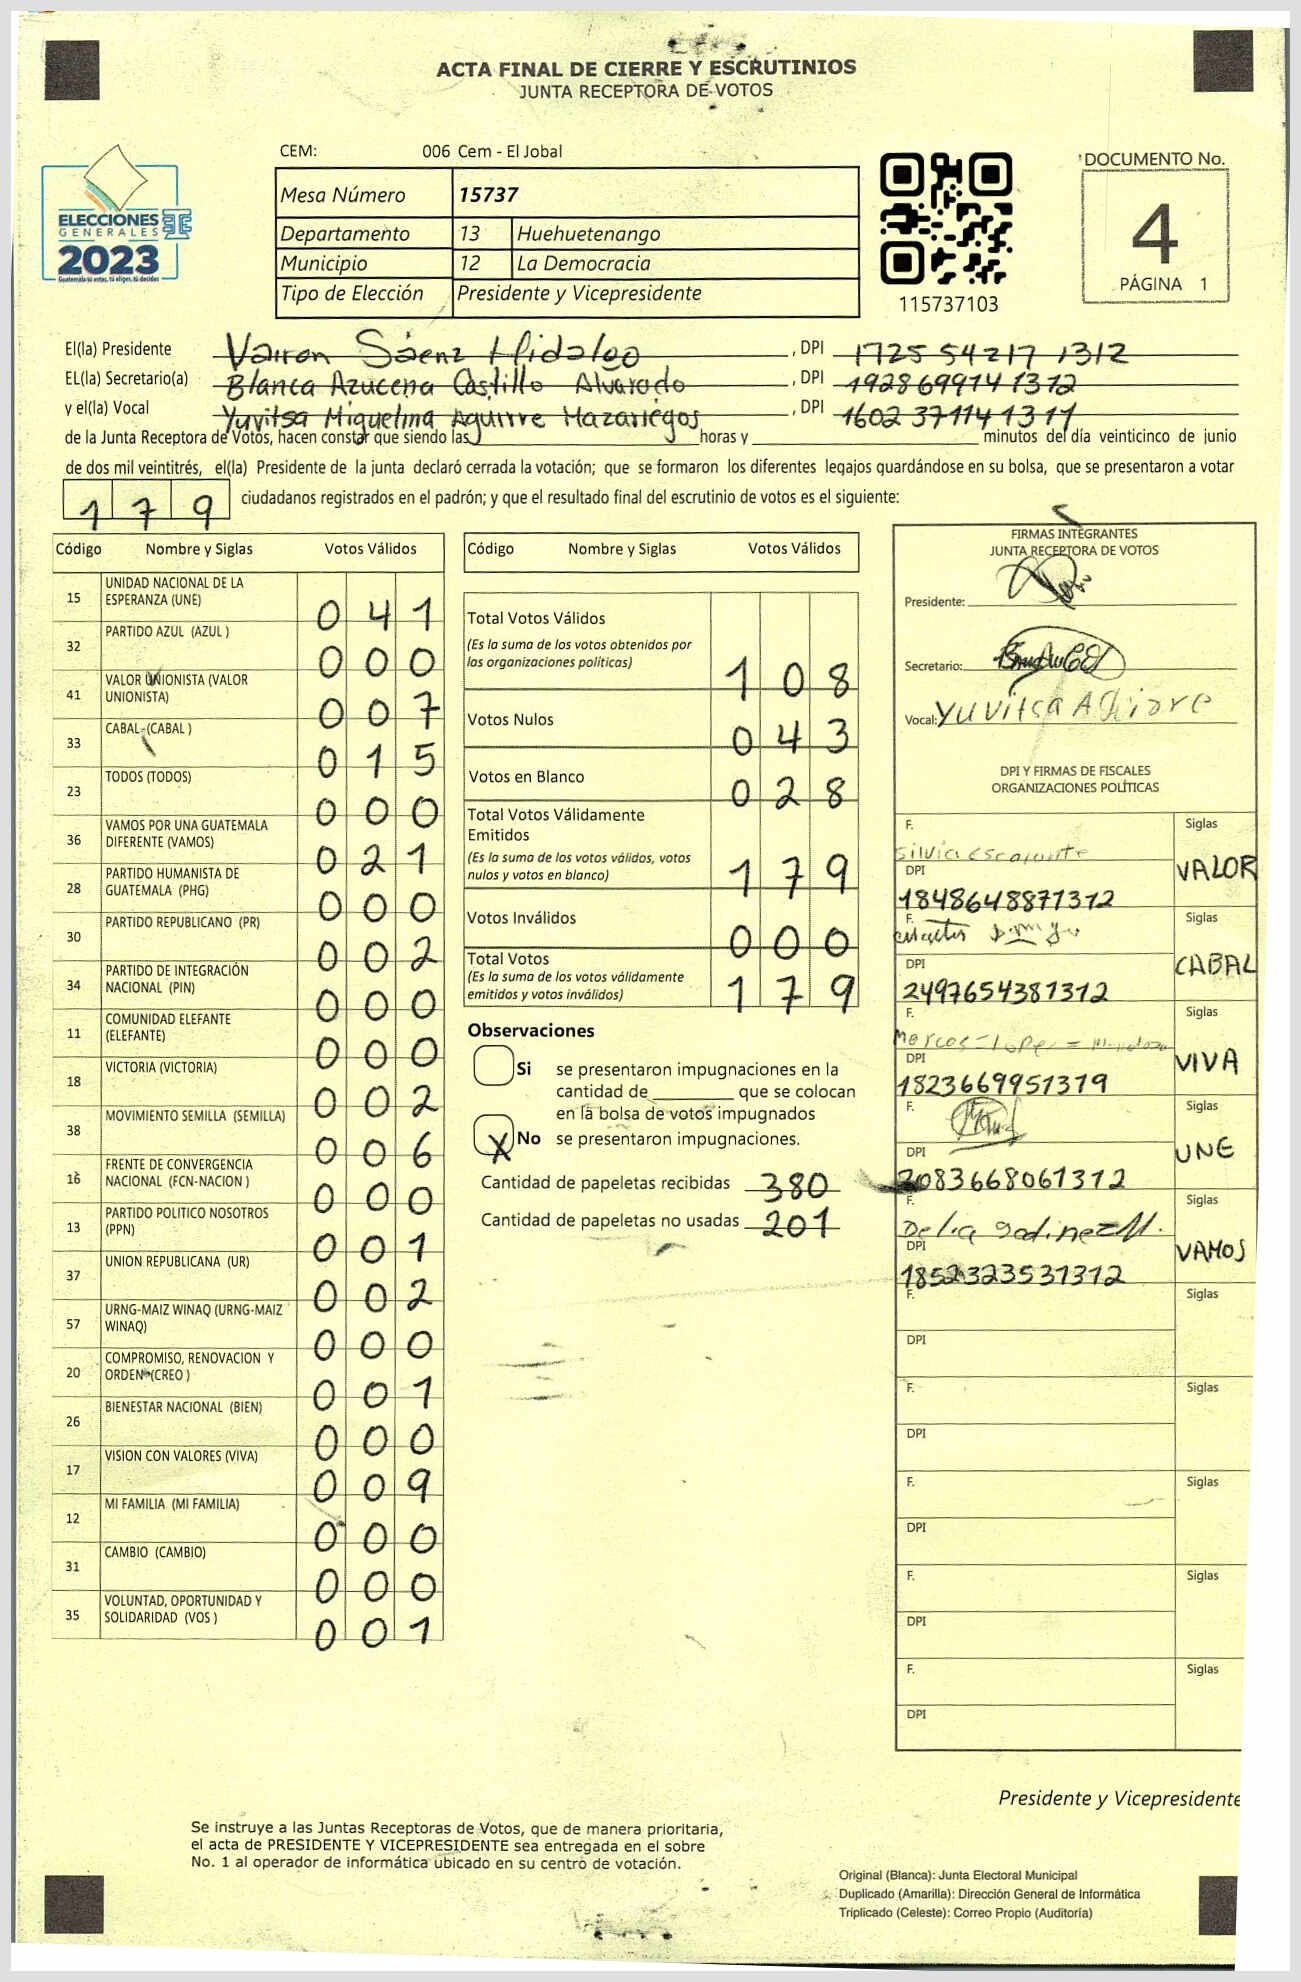 ACTA FINAL DE CIERRE Y ESCRUTINIOS
JUNTA RECEPTORA DE VOTOS
CEM: 006 Cem - El Jobal
ELECCIONES
GENERALES
2023
Guatemala tú estas, tú eliges, tú decides
TSE
Mesa Número 15737
Departamento 13 Huehuetenango
Municipio 12 La Democracia
Tipo de Elección Presidente y Vicepresidente
115737103
DOCUMENTO No.
4
PÁGINA 1
El(la) Presidente Vairon Sáenz Hidalgo, DPI 1725 54217 1312
EL(la) Secretario(a) Blanca Azucena Castillo Alvarado, DPI 192869914 1312
y el(la) Vocal Yuvitsa Miguelina Aguirre Mazariegos, DPI 1602 37114 1311
de la Junta Receptora de Votos, hacen constar que siendo las horas y minutos del día veinticinco de junio
de dos mil veintitrés, el(la) Presidente de la junta declaró cerrada la votación; que se formaron los diferentes legajos guardándose en su bolsa, que se presentaron a votar
179 ciudadanos registrados en el padrón; y que el resultado final del escrutinio de votos es el siguiente:
Código Nombre y Siglas Votos Válidos
15 UNIDAD NACIONAL DE LA ESPERANZA (UNE) 041
32 PARTIDO AZUL (AZUL ) 000
41 VALOR UNIONISTA (VALOR UNIONISTA) 007
33 CABAL (CABAL ) 015
23 TODOS (TODOS) 000
36 VAMOS POR UNA GUATEMALA DIFERENTE (VAMOS) 021
28 PARTIDO HUMANISTA DE GUATEMALA (PHG) 000
30 PARTIDO REPUBLICANO (PR) 002
34 PARTIDO DE INTEGRACIÓN NACIONAL (PIN) 000
11 COMUNIDAD ELEFANTE (ELEFANTE) 000
18 VICTORIA (VICTORIA) 002
38 MOVIMIENTO SEMILLA (SEMILLA) 006
16 FRENTE DE CONVERGENCIA NACIONAL (FCN-NACION ) 000
13 PARTIDO POLITICO NOSOTROS (PPN) 001
37 UNION REPUBLICANA (UR) 002
57 URNG-MAIZ WINAQ (URNG-MAIZ WINAQ) 000
20 COMPROMISO, RENOVACION Y ORDEN (CREO ) 001
26 BIENESTAR NACIONAL (BIEN) 000
17 VISION CON VALORES (VIVA) 009
12 MI FAMILIA (MI FAMILIA) 000
31 CAMBIO (CAMBIO) 000
35 VOLUNTAD, OPORTUNIDAD Y SOLIDARIDAD (VOS ) 001
Código Nombre y Siglas Votos Válidos
Total Votos Válidos
(Es la suma de los votos obtenidos por
las organizaciones políticas) 108
Votos Nulos 043
Votos en Blanco 028
Total Votos Válidamente
Emitidos
(Es la suma de los votos válidos, votos
nulos y votos en blanco) 179
Votos Inválidos 000
Total Votos
(Es la suma de los votos válidamente
emitidos y votos inválidos) 179
Observaciones
Si se presentaron impugnaciones en la
cantidad de que se colocan
en la bolsa de votos impugnados
X No se presentaron impugnaciones.
Cantidad de papeletas recibidas 380
Cantidad de papeletas no usadas 201
FIRMAS INTEGRANTES
JUNTA RECEPTORA DE VOTOS
Presidente:
Secretario:
Vocal: Yuvitsa Aguirre
DPI Y FIRMAS DE FISCALES
ORGANIZACIONES POLÍTICAS
F. Silvia Escalante Siglas
DPI 1848648871312 VALOR
F. Siglas
DPI 2497654381312 CABAL
F. Marcos Lopez Siglas
DPI 1823669951319 VIVA
F. Siglas
DPI 2083668061312 UNE
F. Delia Godinez M. Siglas
DPI 1852323531312 VAMOS
F. Siglas
DPI
F. Siglas
DPI
F. Siglas
DPI
F. Siglas
DPI
F. Siglas
DPI
Presidente y Vicepresidente
Se instruye a las Juntas Receptoras de Votos, que de manera prioritaria,
el acta de PRESIDENTE Y VICEPRESIDENTE sea entregada en el sobre
No. 1 al operador de informática ubicado en su centro de votación.
Original (Blanca): Junta Electoral Municipal
Duplicado (Amarilla): Dirección General de Informática
Triplicado (Celeste): Correo Propio (Auditoría)